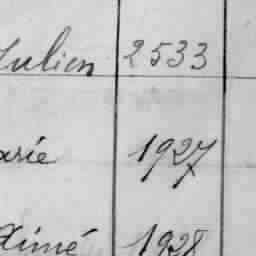 Julien 2533
arie 1927
Aimé 1928